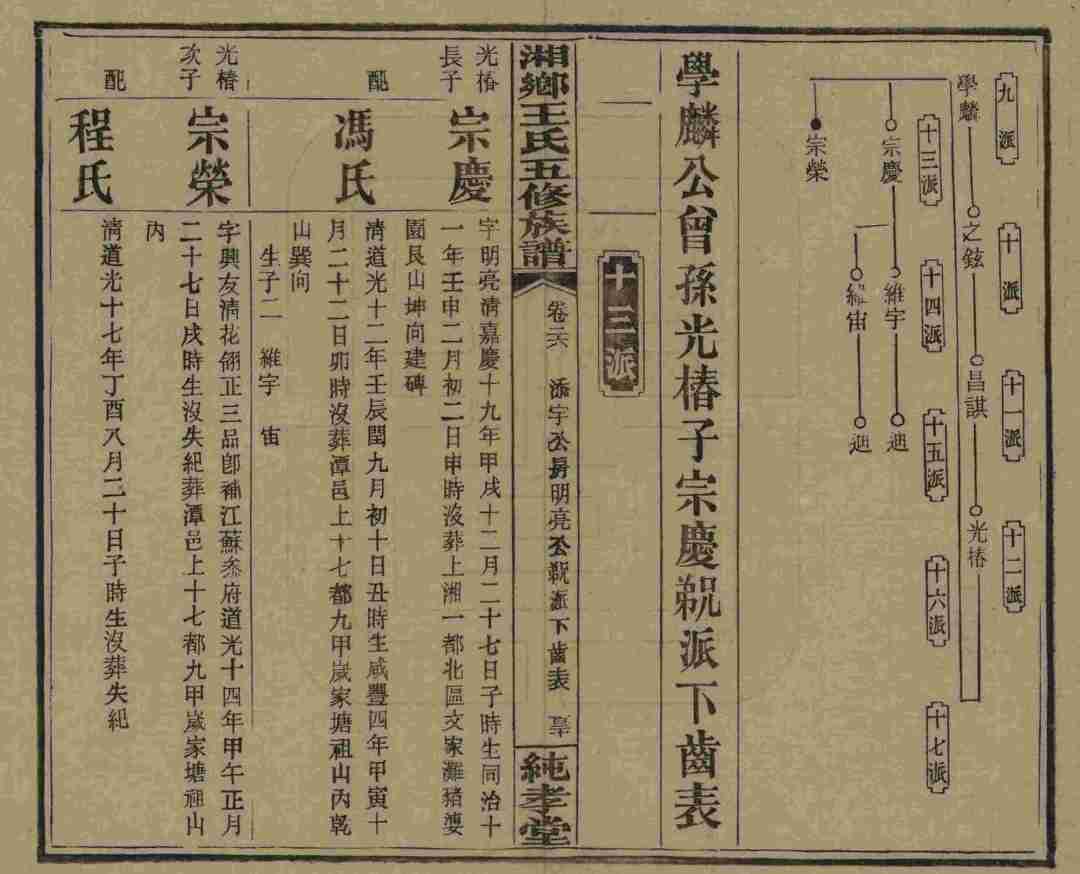 九派
十派
十一派
十二派
學麟
之鉉
昌諆
光椿
十三派
十四派
十五派
十六派
十七派
宗慶
維宇
迺
維宙
迺
宗榮
學麟公曾孫光椿子宗慶覜派下齒表
十三派
湘鄉王氏五修族譜
卷六
添宇公房明亮公覜派下齒表
純孝堂
光椿長子
宗慶
字明亮清嘉慶十九年甲戌十二月二十七日子時生同治十
一年壬申二月初二日申時沒葬上湘一都北區文家灘豬婆
園艮山坤向建碑
配
馮氏
清道光十二年壬辰閏九月初十日丑時生咸豐四年甲寅十
月二十二日卯時沒葬潭邑上十七都九甲嵗家塘祖山內乾
山巽向
生子二 維宇 宙
光椿次子
宗榮
字興友清花翎正三品卽補江蘇叅府道光十四年甲午正月
二十七日戌時生沒失紀葬潭邑上十七都九甲嵗家塘祖山
內
配
程氏
清道光十七年丁酉八月二十日子時生沒葬失紀